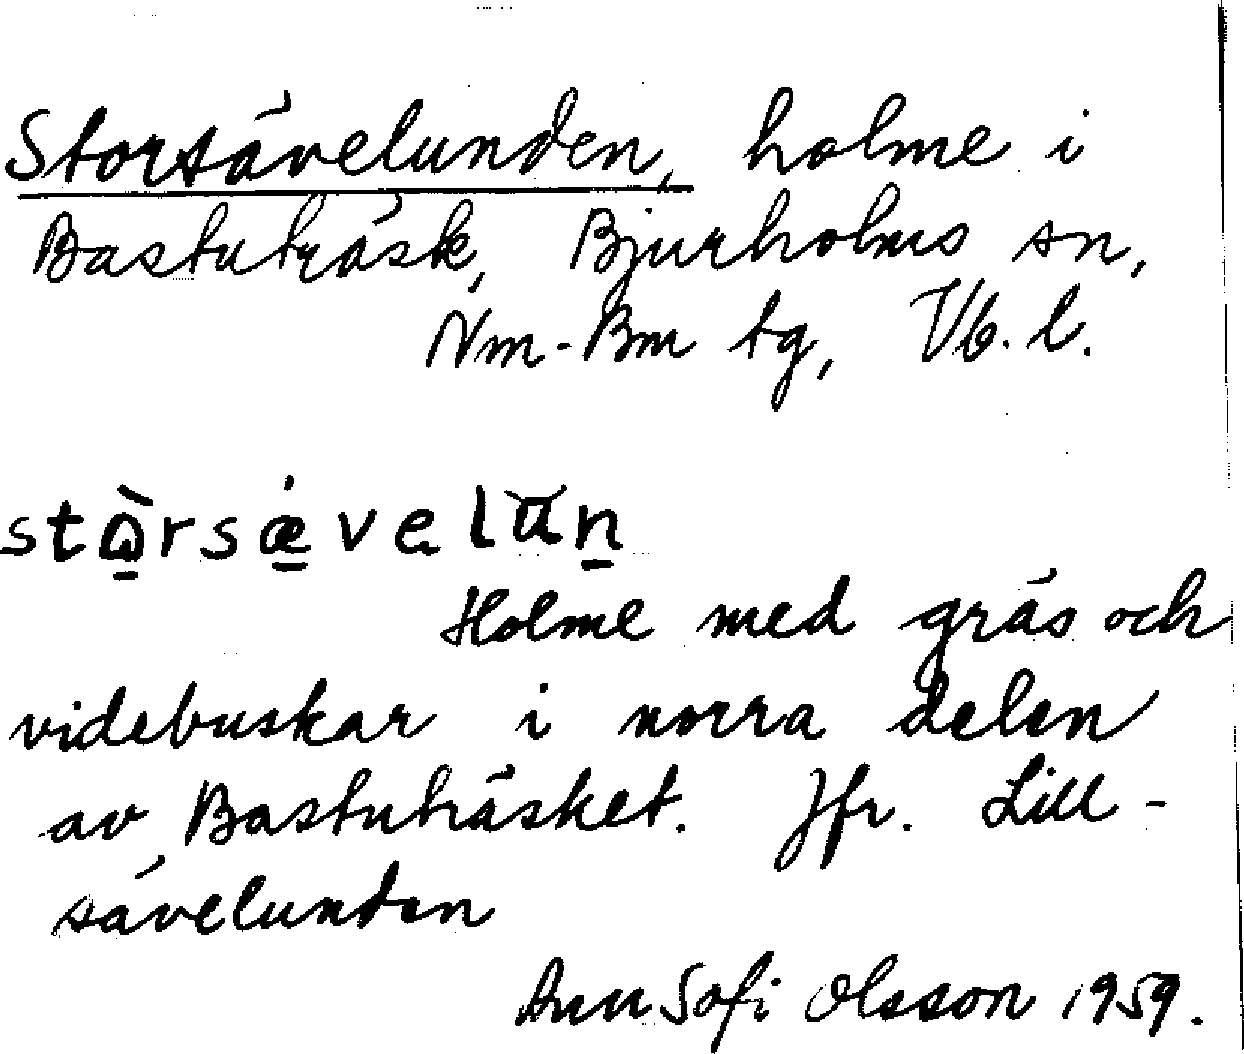 Storsävelunden, holme i
Bastuträsk, Bjurholms sn,
Nm-Bm tg, Vb. l.
Holme med gräs och
videbuskar i norra delen
av Bastuträsket. Jfr. Lill-
sävelunden
Ann Sofi Olsson 1959.